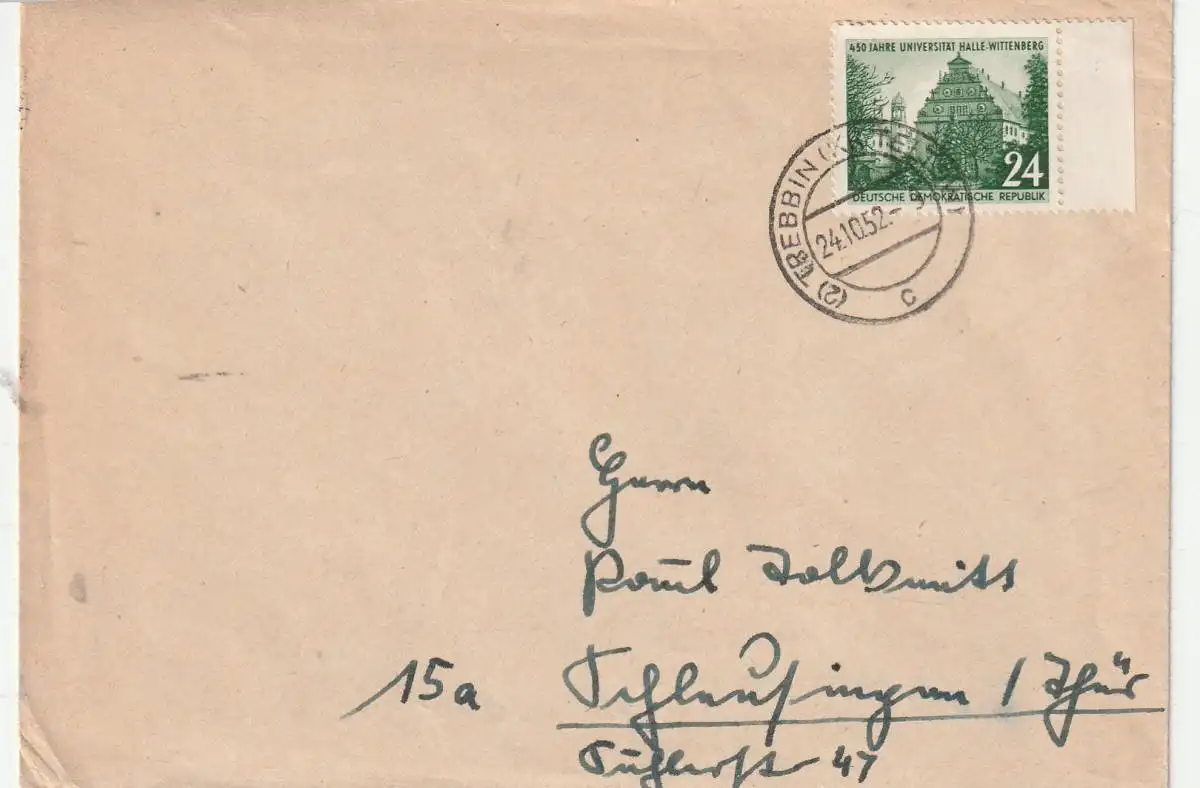 450 JAHRE UNIVERSITÄT HALLE-WITTENBERG
24
DEUTSCHE DEMOKRATISCHE REPUBLIK
(2) TREBBIN (K
24.10.52.-
c
Herrn
Paul
15a Schleusingen / Thür
Suhlerstr 47